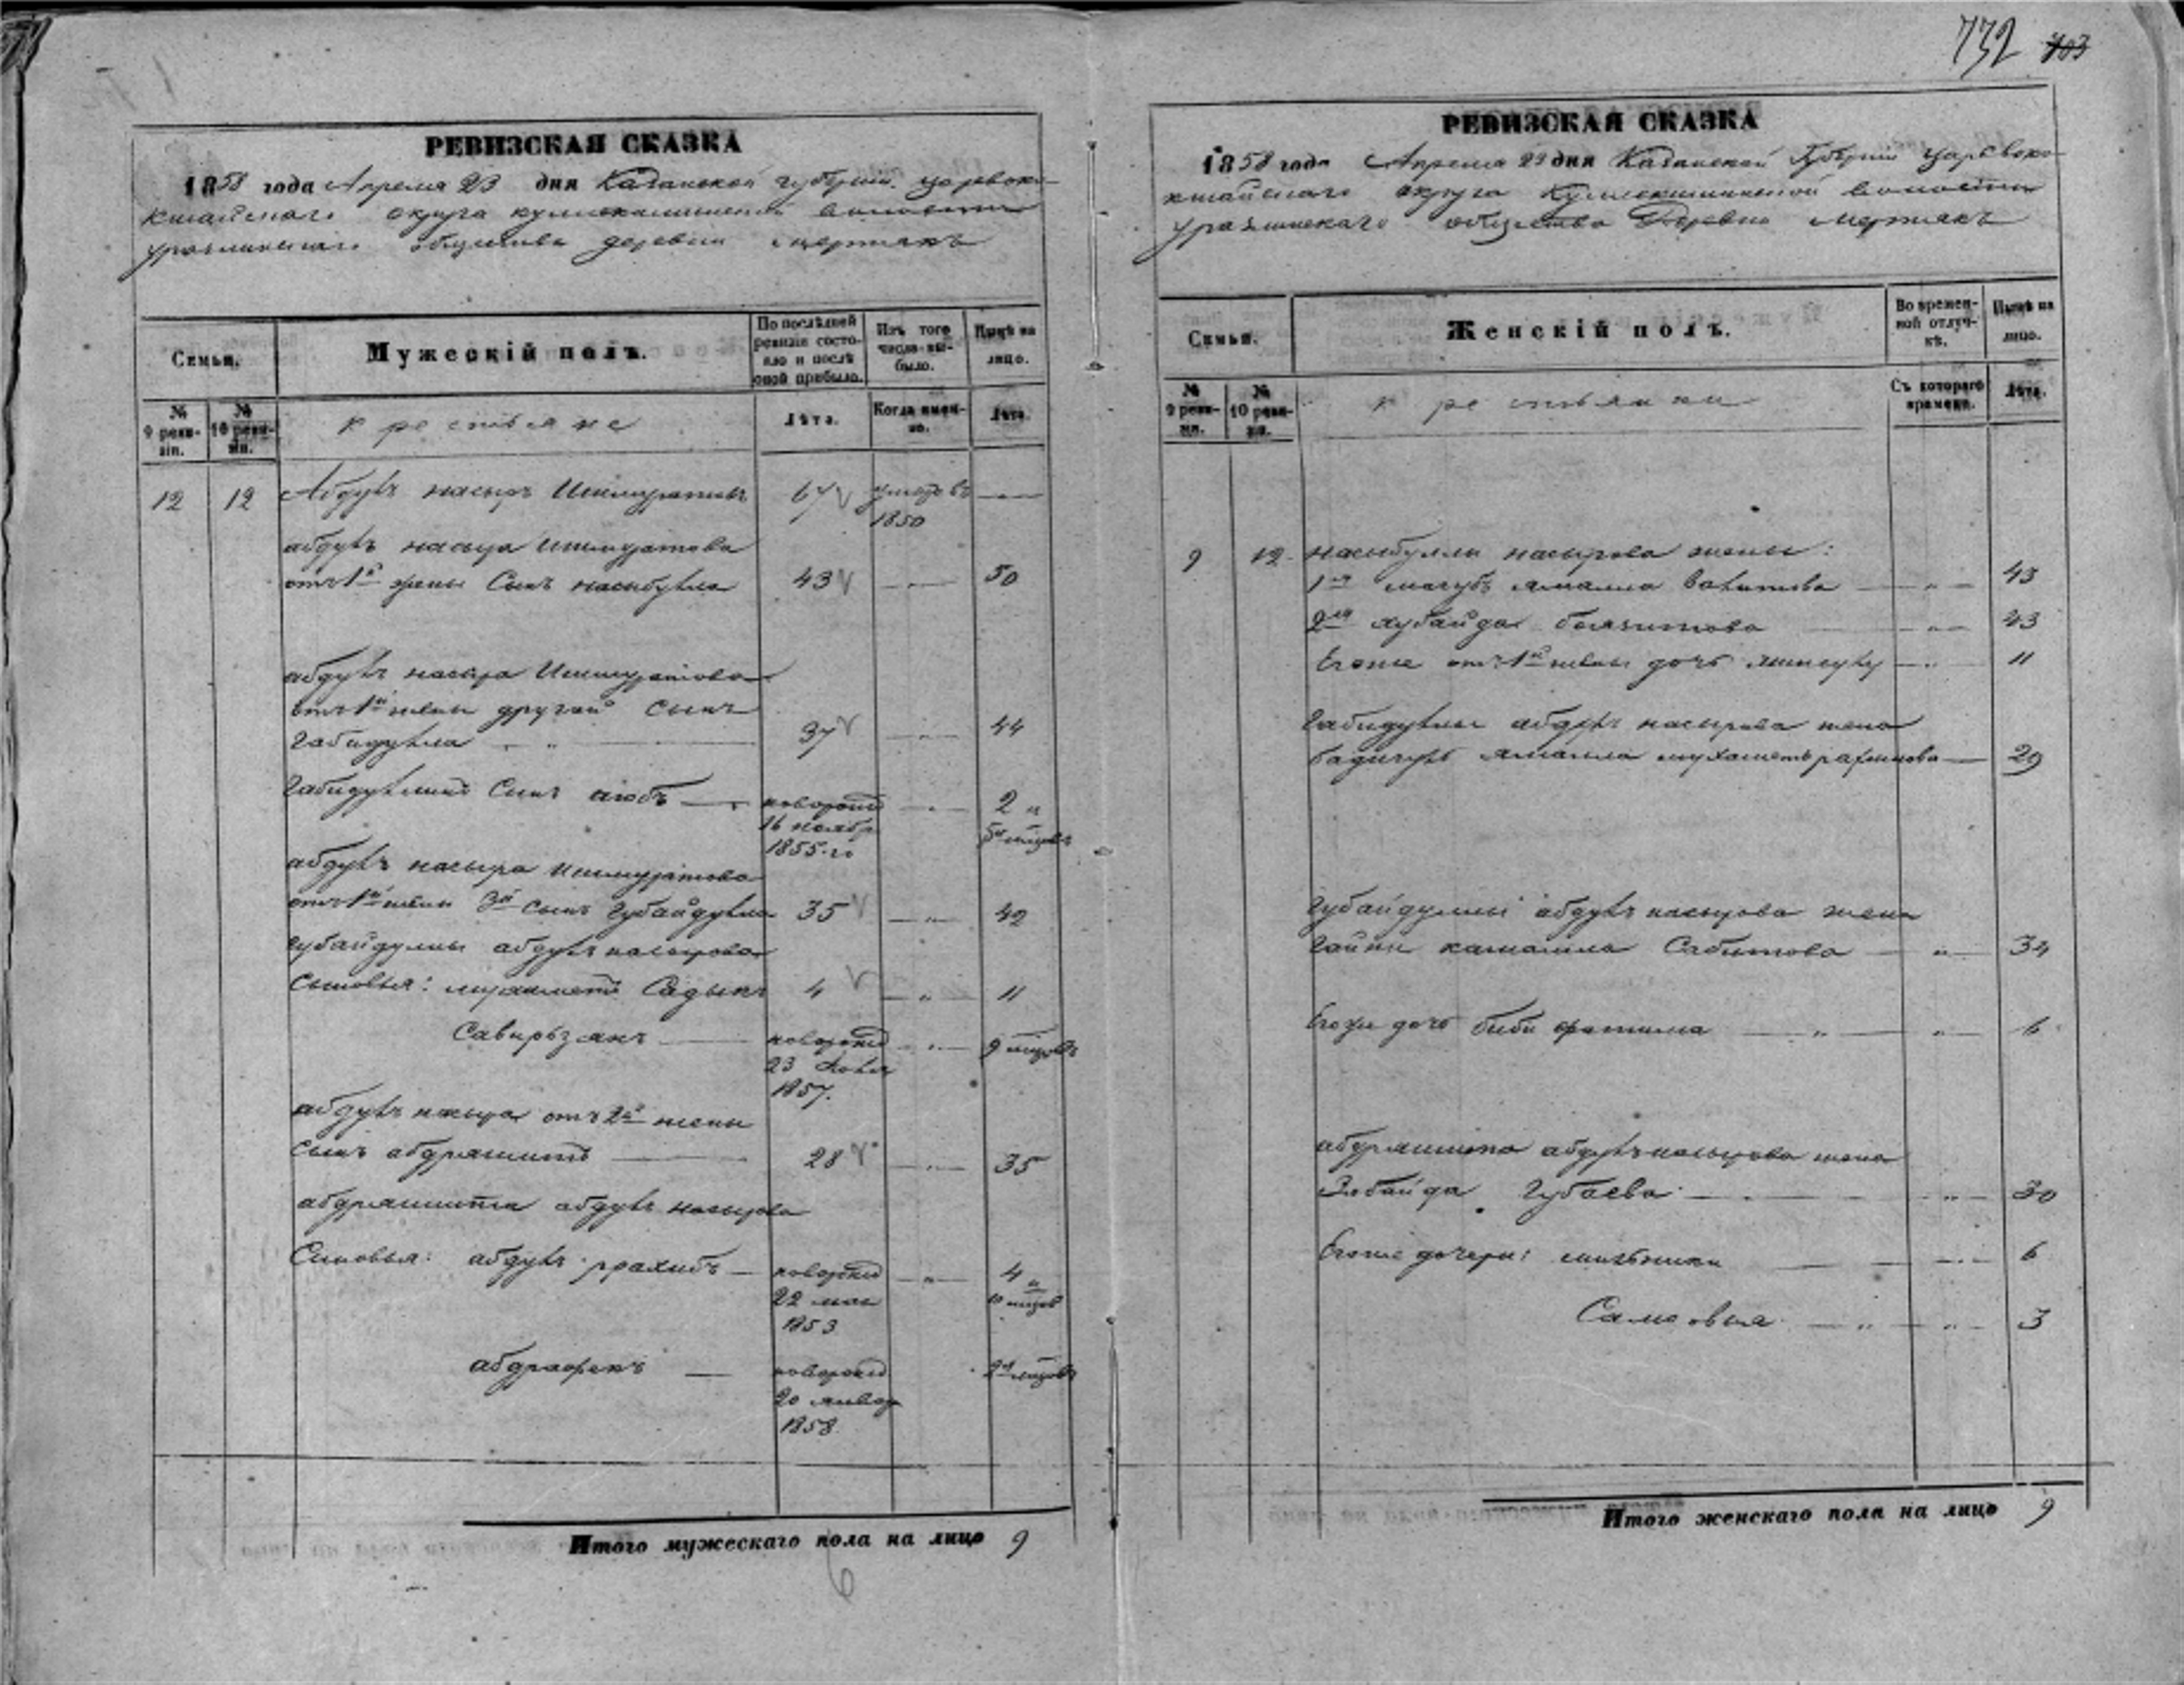 732 703
РЕВИЗСКАЯ СКАЗКА
1858 года Апреля 23 дня Казанской губернии царевоко-
кшайскаго округа волости
уразлинскаго общества деревни мертякъ
Семьи.
Мужескій полъ.
По послѣдней ревизіи состояло и послѣ оной прибыло.
Изъ того числа выбыло.
Нынѣ на лицо.
№ 9 ревизіи.
№ 10 ревизіи.
крестьяне
Лѣта.
Когда именно.
Лѣта.
12 12 Абдулъ насыръ Ишмуратовъ 67 умеръ въ 1850 —
абдулъ насыра Ишмуратова
отъ 1й жены Сынъ насыбулла 43 — " — 50
абдулъ насыра Ишмуратова
отъ 1й жены другой сынъ
Габидулла — " — 37 — " — 44
Габидуллинъ Сынъ аюбъ — новорожд — " — 2 и
16 ноябр 5 мѣцовъ
1855 го
абдулъ насыра Ишмуратова
отъ 1й жены 3й сынъ Губайдулла 35 — " — 42
Губайдуллы абдулъ насырова
Сыновья: мухаметъ Садыкъ 4 — " — 11
Савирьзянъ — новорожд — " — 9 мѣцовъ
23 Июля
1857.
абдулъ насыра отъ 2й жены
сынъ абдряшитъ — 28 — " — 35
абдряшита абдулъ насырова
Сыновья: абдулъ рахибъ — новорожд — " — 4 и
22 мая 10 мѣцов
1853
абдрафекъ — новорожд 2 мѣцовъ
20 январ
1858
Итого мужескаго пола на лицо 9
6
РЕВИЗСКАЯ СКАЗКА
1858 года Апреля 23 дня Казанской Губерніи Царевоко-
кшайскаго округа волости
уразлинскаго общества Деревни мертякъ
Семьи.
Женскій полъ.
Во временной отлучкѣ.
Нынѣ на лицо.
№ 9 ревизіи.
№ 10 ревизіи.
крестьянки
Съ котораго времени.
Лѣта.
9 12 насыбуллы насырова жены:
1я ямалла Вахитова — " — 43
2я зубайда баязитова — " — 43
Егоже отъ 1й жены дочь — " — 11
Габидуллы абдулъ насырова жена
ямалла мухаметьрахимова — 29
Губайдуллы абдулъ насырова жена
камалла Сабитова — " — 34
Егоже дочь биби фатима — " — " — 6
абдряшита абдулъ насырова жена
Зюбайда Губаева — " — 30
Егоже дочери: — " — 6
— " — " — 3
Итого женскаго пола на лицо 9